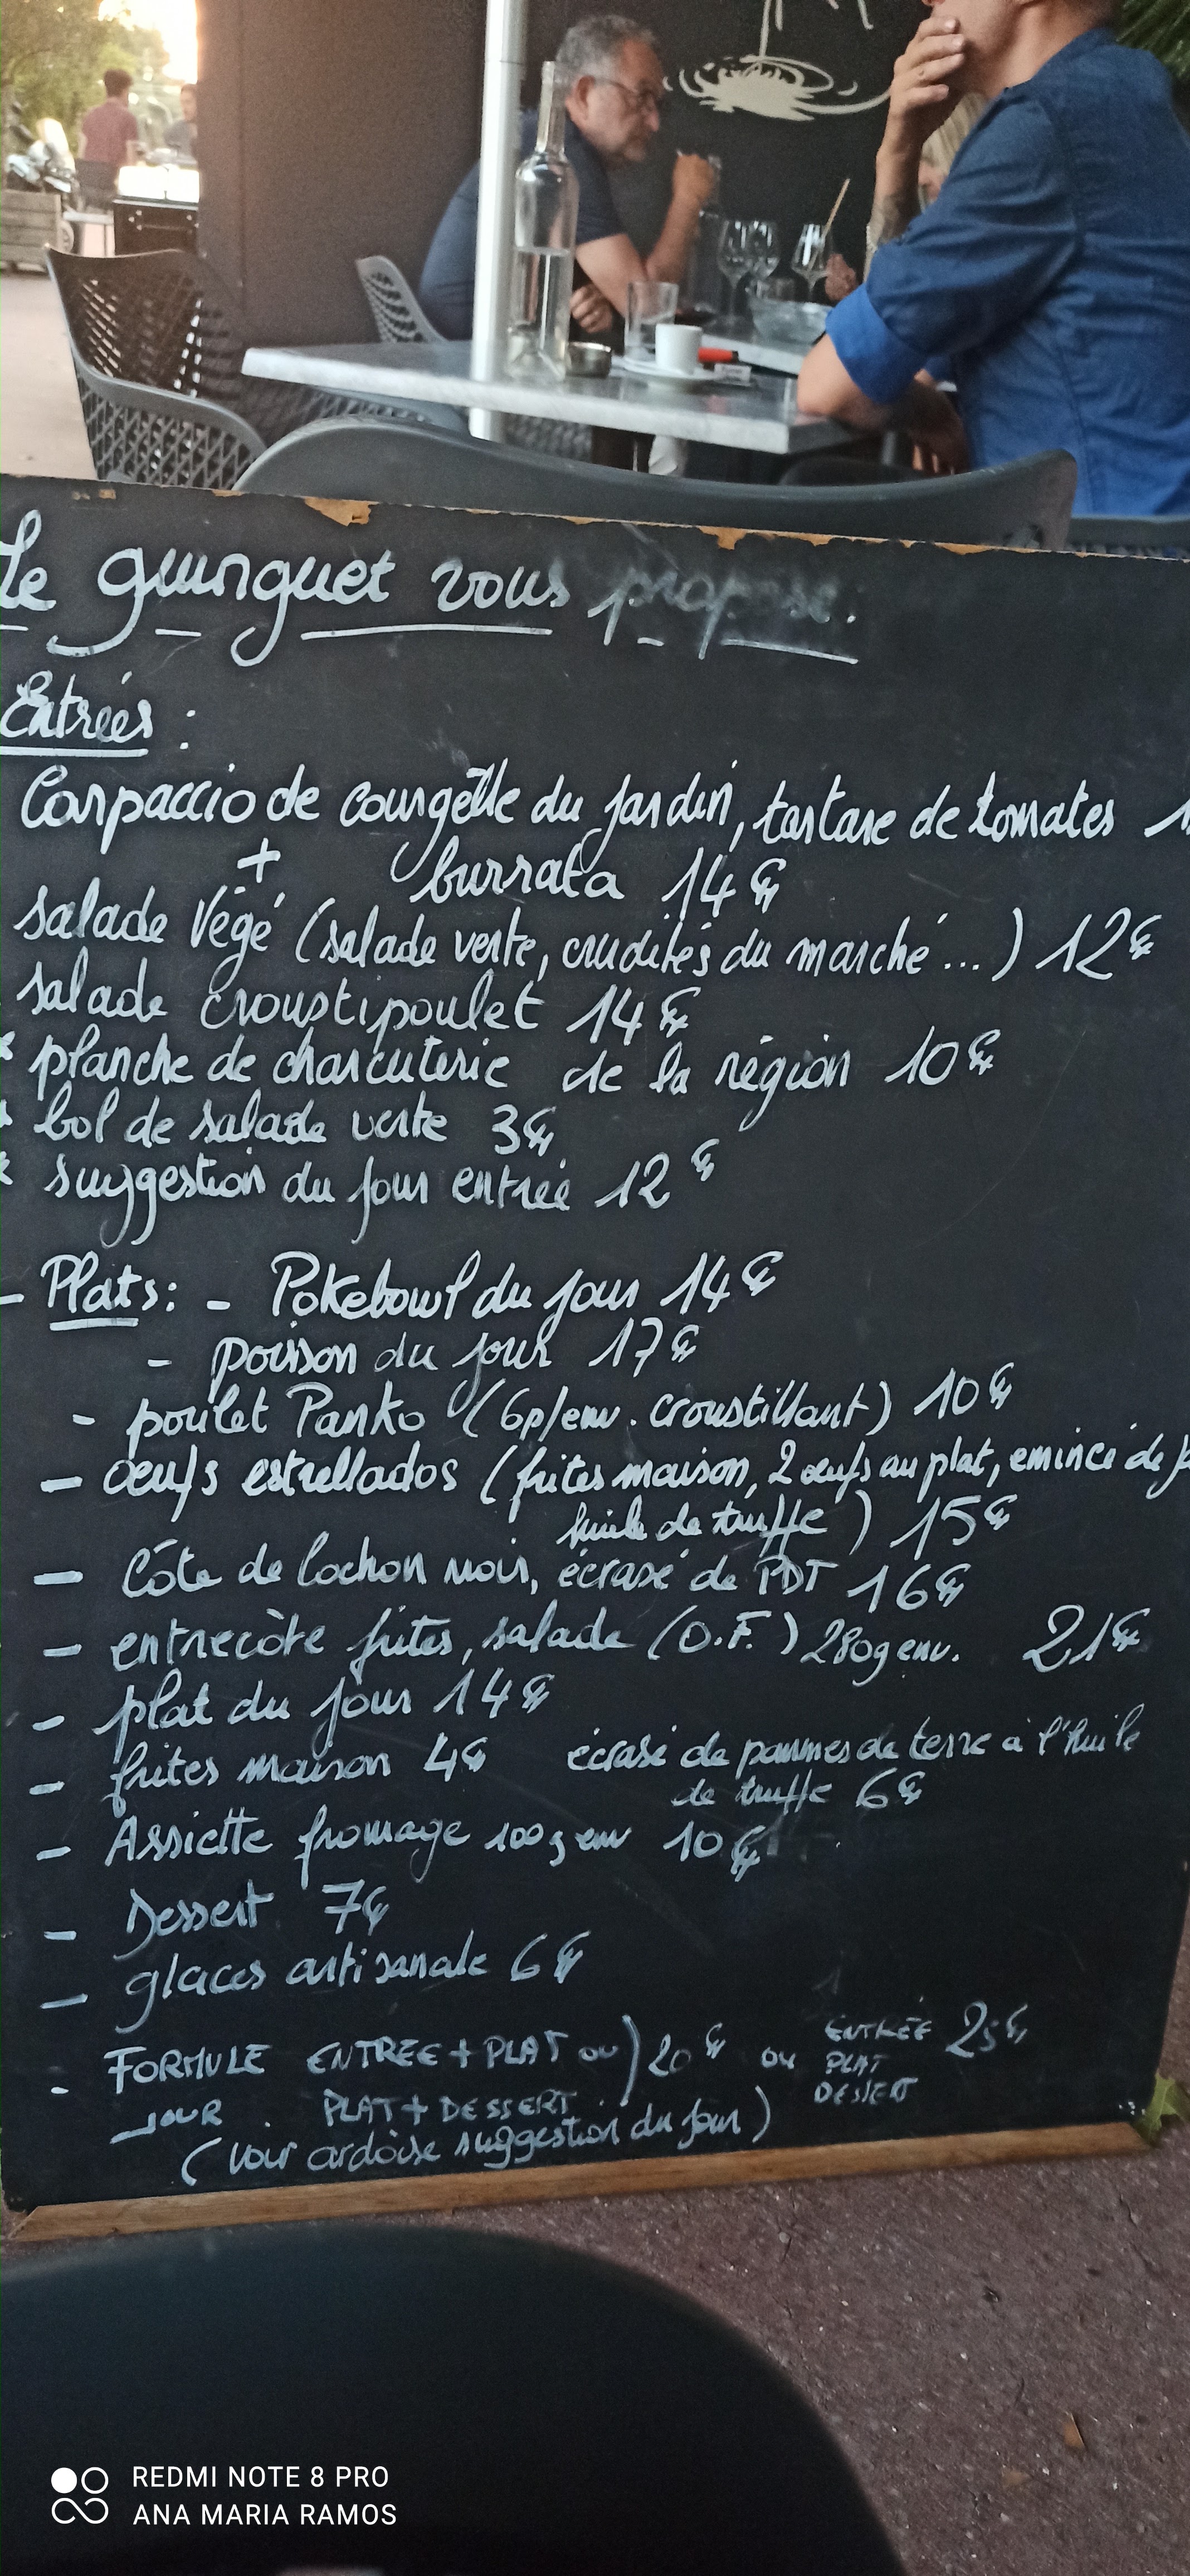 Le guinguet vous propose :
Entrées :
Carpaccio de courgette du jardin, tartare de tomates 1
+ burrata 14€
salade Végé (salade verte, crudités du marché...) 12€
salade croustipoulet 14€
* planche de charcuterie de la région 10€
* bol de salade verte 3€
* suggestion du jour entrée 12€
- Plats : - Pokebowl du jour 14€
- poisson du jour 17€
- poulet Panko (6p/env. croustillant) 10€
- oeufs estrellados (frites maison, 2 oeufs au plat, emincé de
huile de truffe) 15€
- Côte de Cochon noir, écrasé de PDT 16€
- entrecôte frites, salade (O.F.) 280g env. 21€
- plat du jour 14€
- frites maison 4€ écrasé de pommes de terre à l'huile
de truffe 6€
- Assiette fromage 100g env 10€
- Dessert 7€
- glaces artisanale 6€
- FORMULE ENTREE + PLAT ou ) 20€ ou ENTRÉE 25€
PLAT
JOUR . PLAT + DESSERT . DESSERT
(voir ardoise suggestion du jour)
REDMI NOTE 8 PRO
ANA MARIA RAMOS